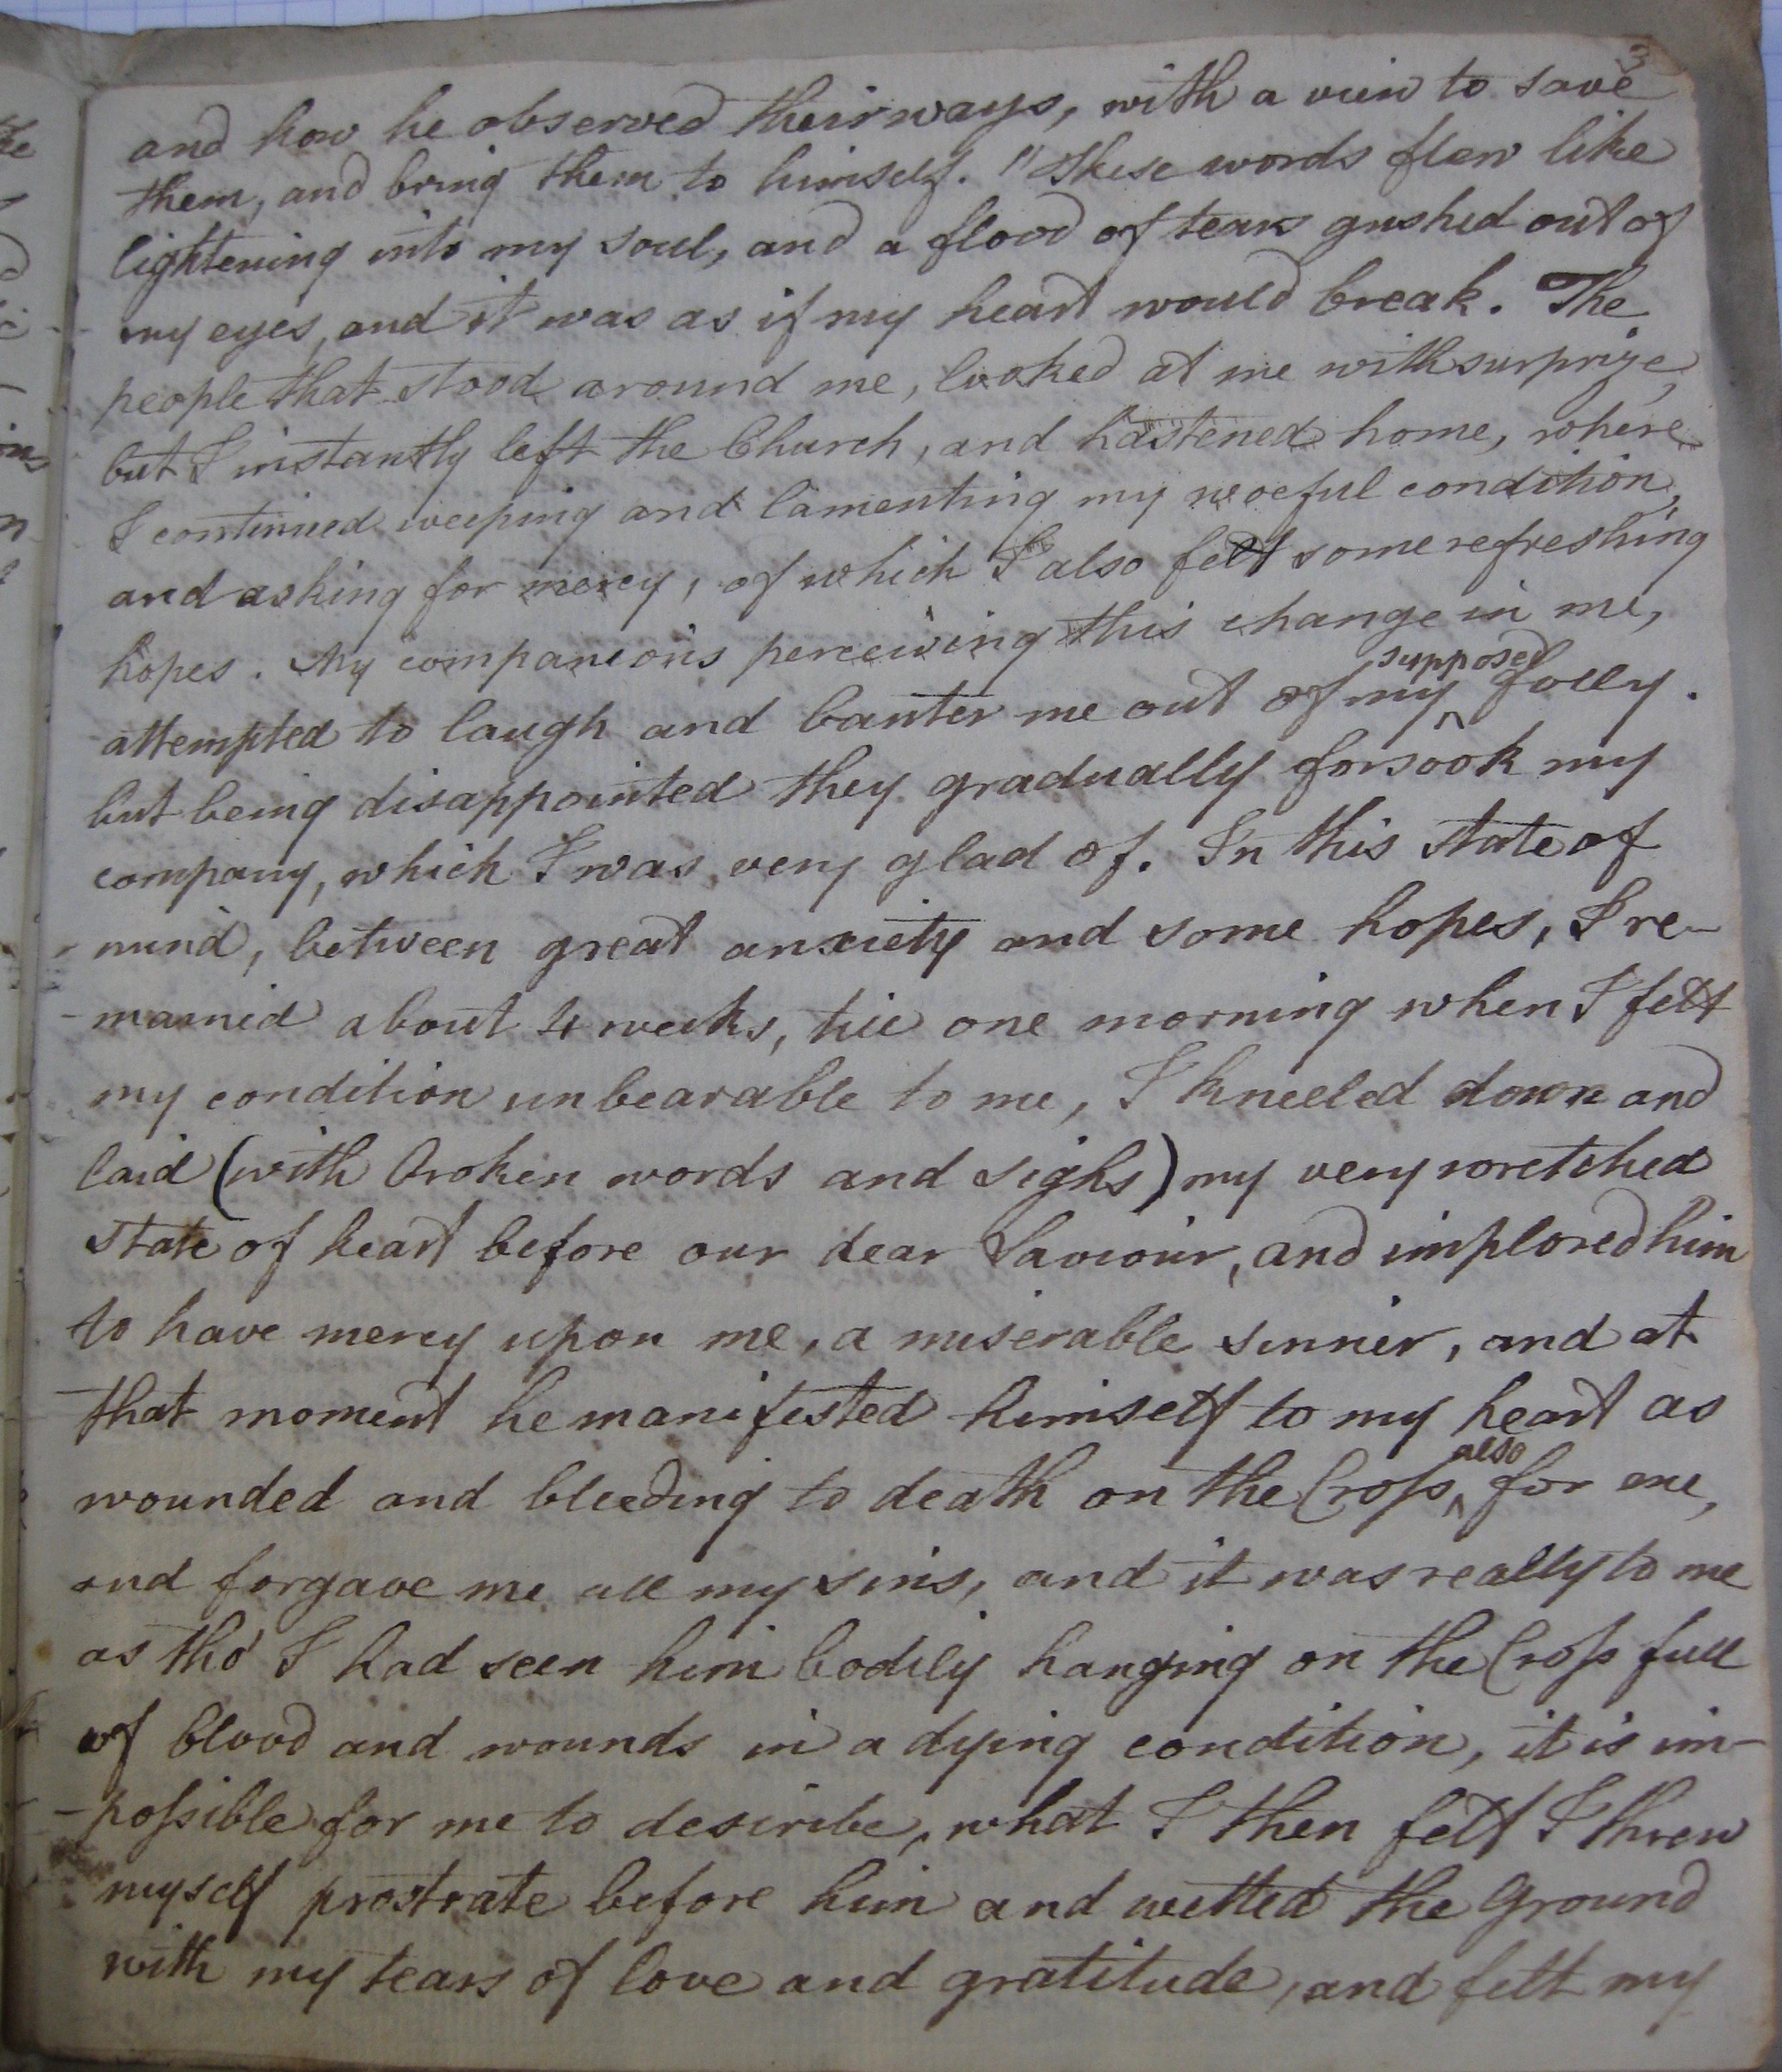 3
and how he observed their ways, with a view to save
them, and bring them to himself. " These words flew like
lightening into my soul, and a flood of tears gushed out of
my eyes, and it was as if my heart would break. The
people that stood around me, looked at me with surprize,
but I instantly left the Church, and hastened home, where
I continued weeping and lamenting my woeful condition,
and asking for mercy, of which I also felt some refreshing
hopes. My companions perceiving this change in me,
attempted to laugh and banter me out of my supposed folly.
but being disappointed they gradually forsook my
company, which I was very glad of. In this state of
mind, between great anxiety and some hopes, I re-
-mained about 4 weeks, till one morning when I felt
my condition unbearable to me, I kneeled down and
laid (with broken words and sighs) my very wretched
state of heart before our dear Saviour, and implored him
to have mercy upon me, a miserable sinner, and at
that moment he manifested himself to my heart as
wounded and bleeding to death on the Croſs also for me,
and forgave me all my sins, and it was really to me
as tho' I had seen him bodily hanging on the Croſs full
of blood and wounds in a dying condition, it is im-
-poſsible for me to describe, what I then felt I threw
myself prostrate before him and wetted the Ground
with my tears of love and gratitude, and felt my